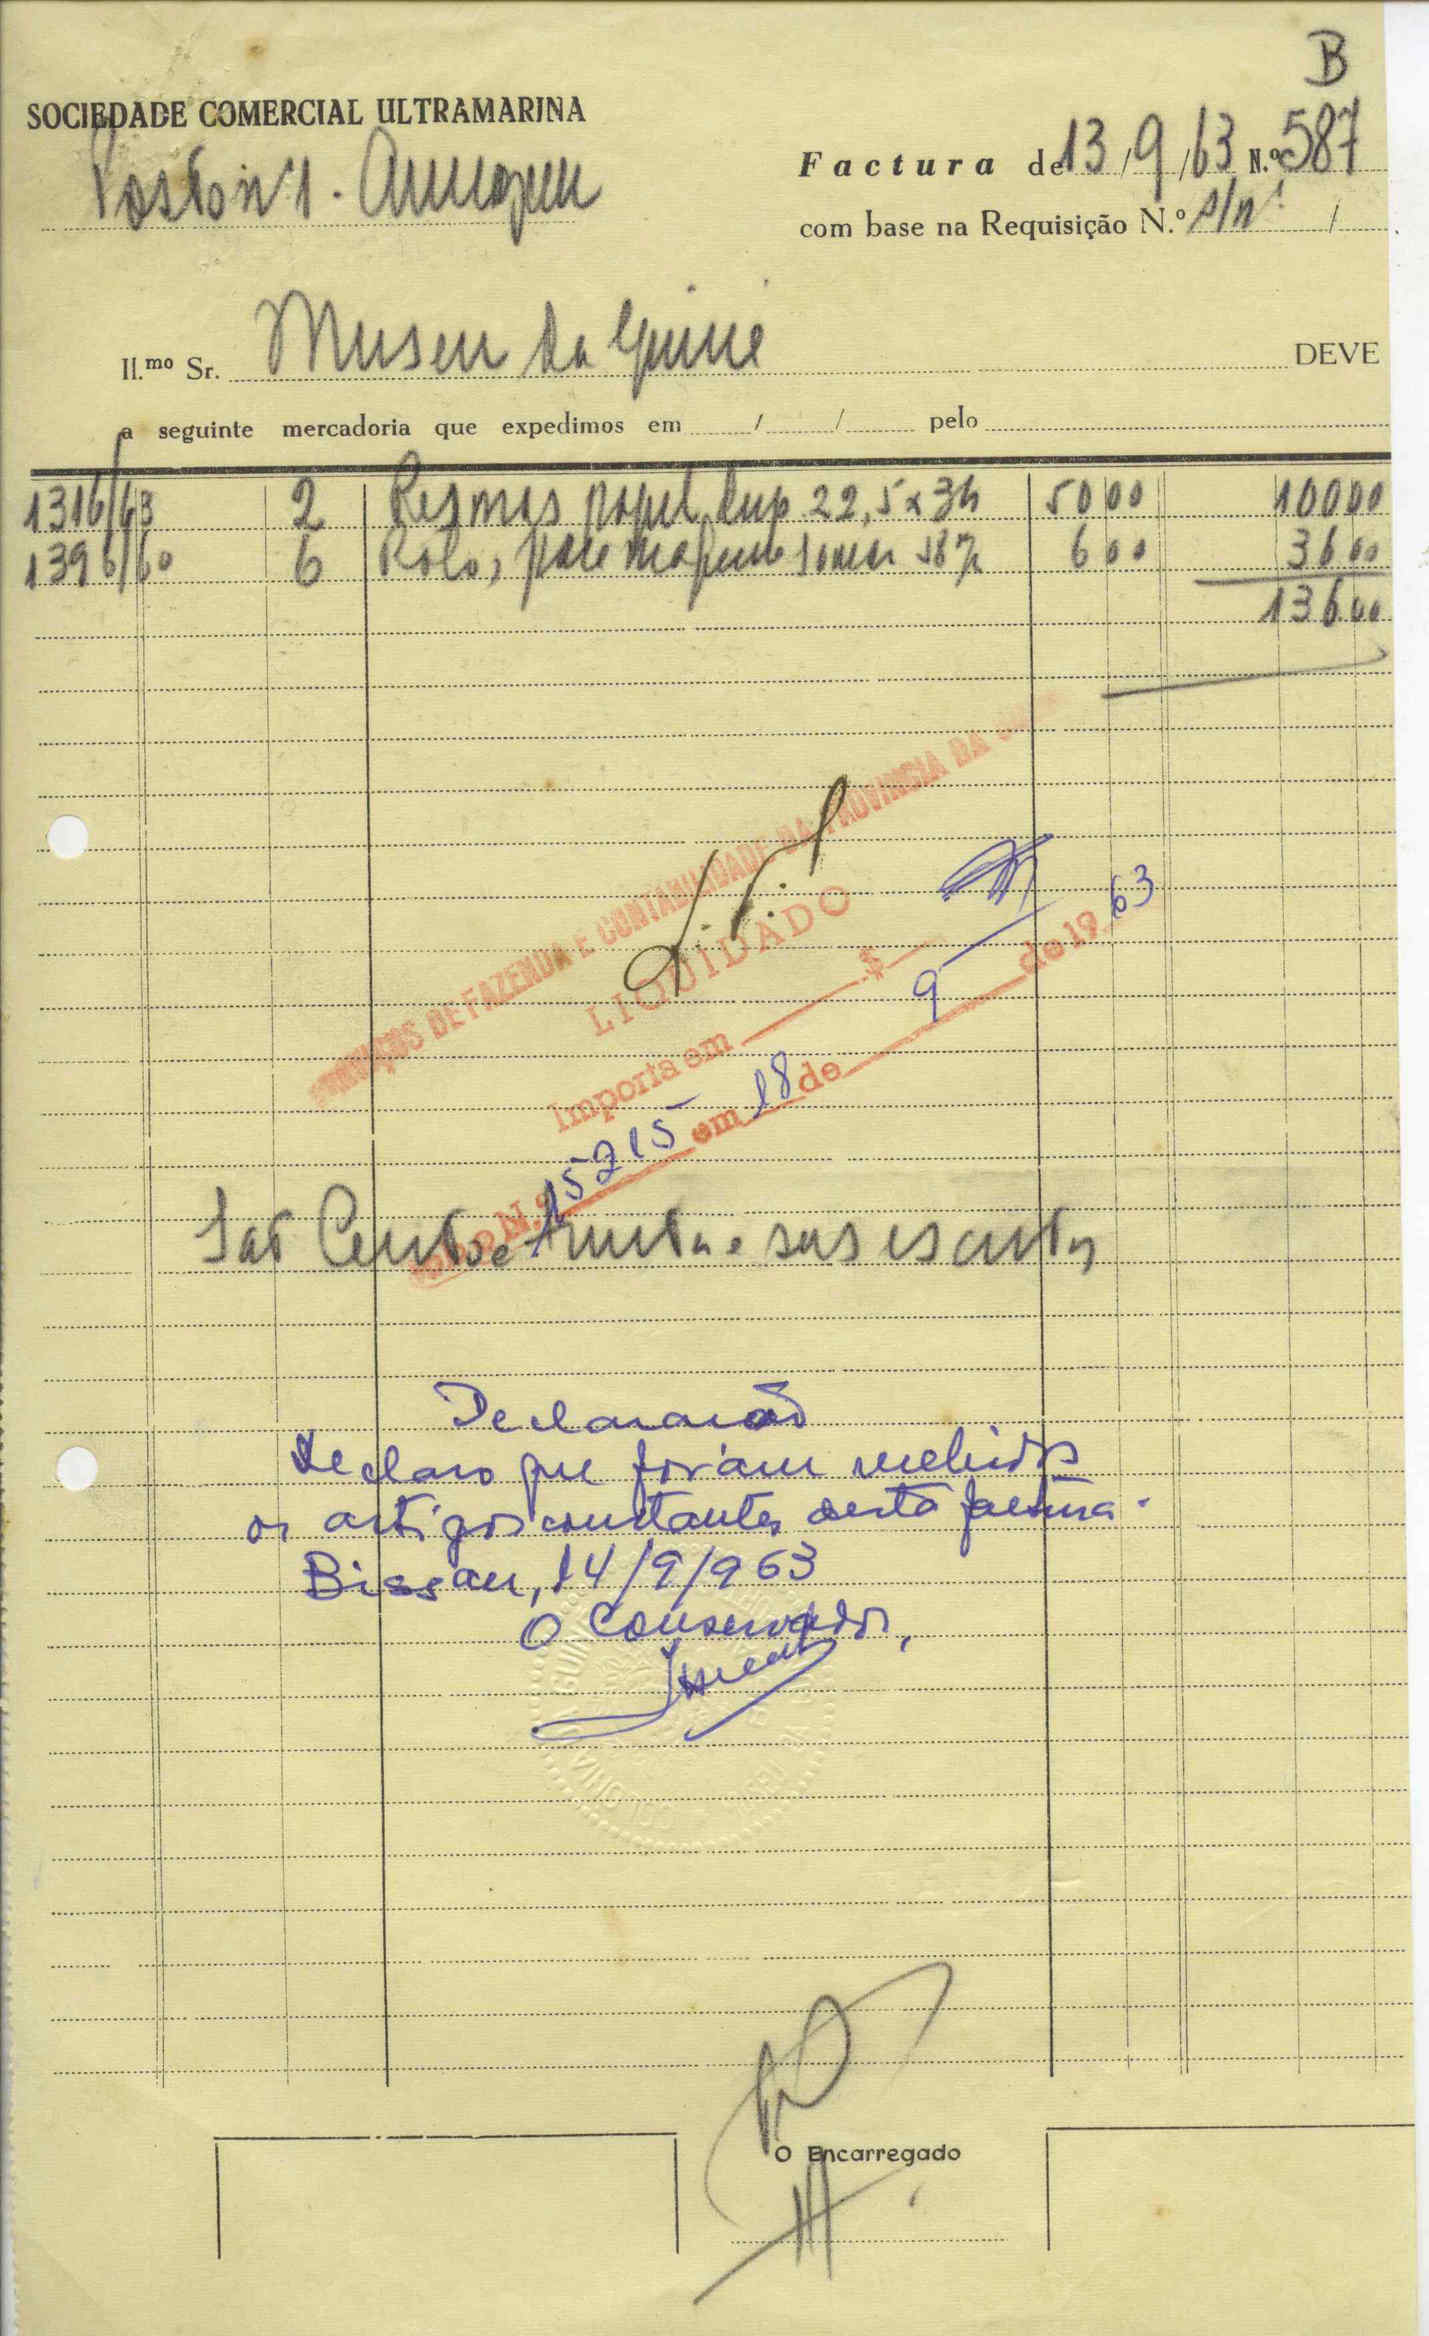 B
SOCIEDADE COMERCIAL ULTRAMARINA
Posto nº 1 - Armazem
Factura de 13/9/63 N.º 587
com base na Requisição N.º s/nº /
Il.mo Sr. Museu da Guiné DEVE
a seguinte mercadoria que expedimos em / / pelo
1316/63 2 Resmas papel dup. 22,5x34 50 00 100 00
1396/60 6 Rolo, para 6 00 36 00
136 00
SERVIÇOS DE FAZENDA E CONTABILIDADE DA PROVINCIA DA
LIQUIDADO
Importa em $
N.º 15215 em 18 de 9 de 1963
São Cento e trinta e seis escudos
Declaração
Declaro que foram recebidos
os artigos constantes desta factura.
Bissau, 14/9/963
O Conservador,
O Encarregado